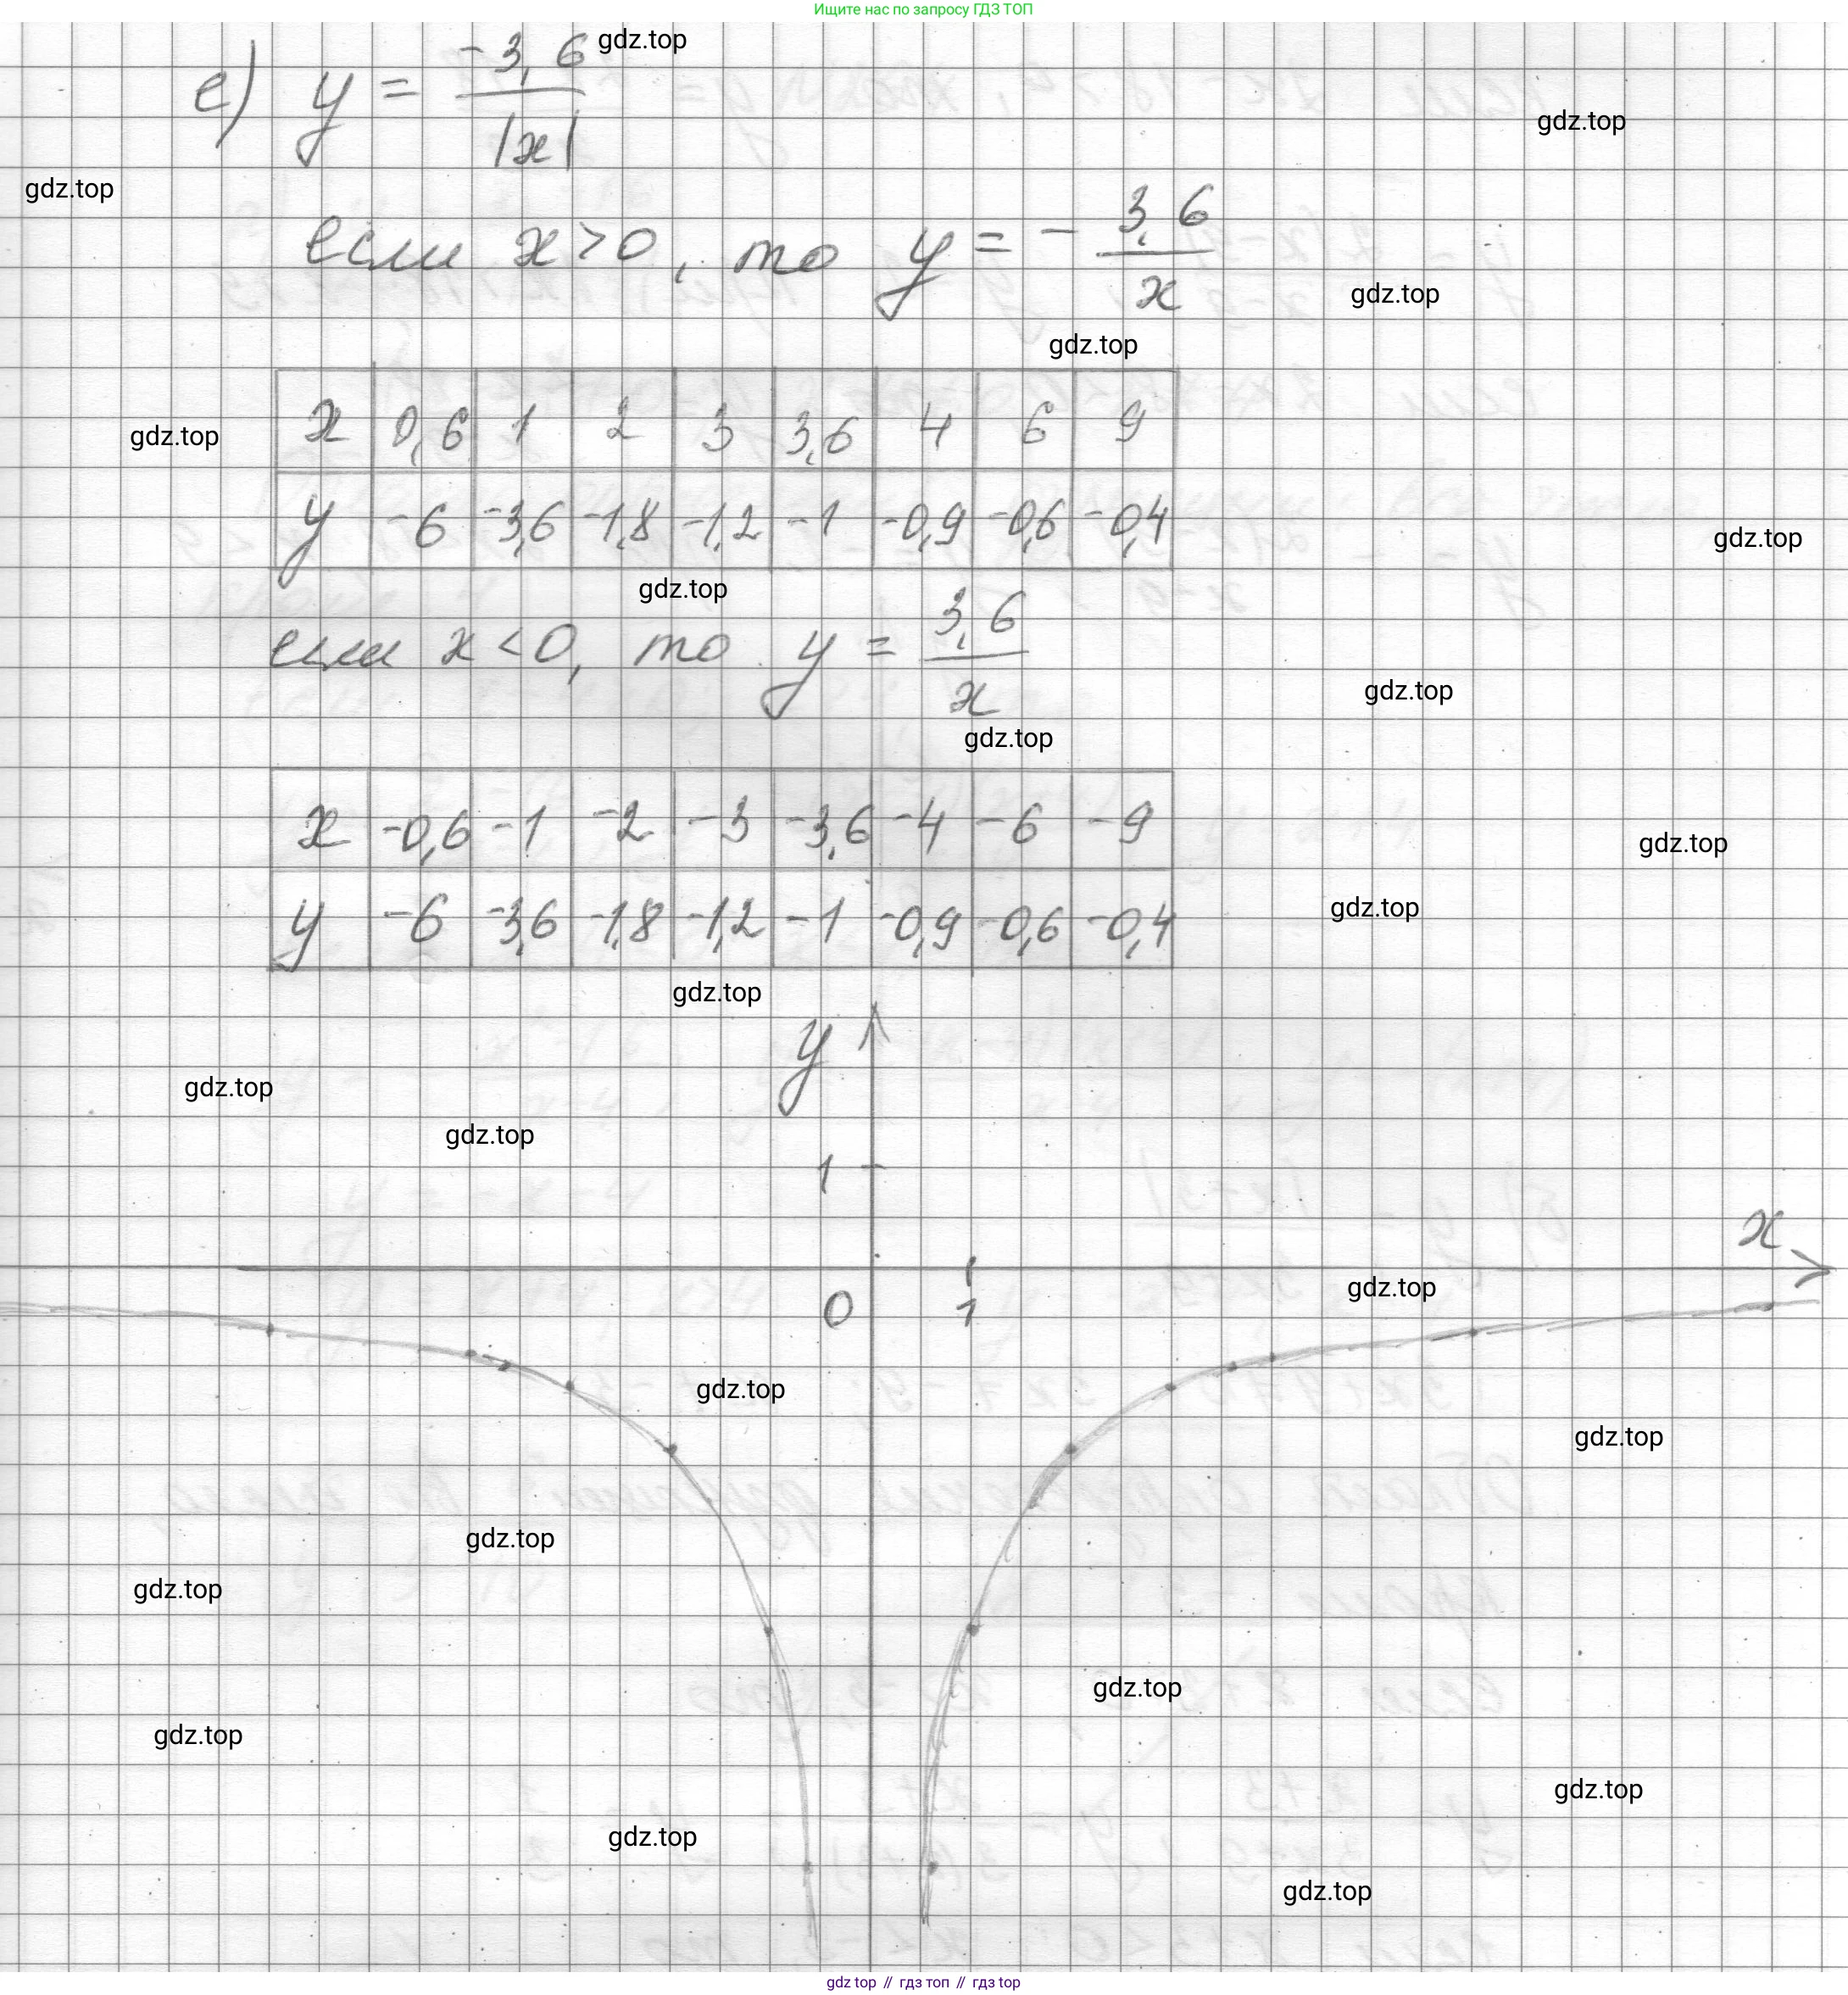 Ищите нас по запросу ГДЗ ТОП
е) y = -3,6 / |x|
gdz.top
gdz.top
gdz.top
если x > 0, то y = - 3,6 / x
gdz.top
gdz.top
x 0,6 1 2 3 3,6 4 6 9
gdz.top
y -6 -3,6 -1,8 -1,2 -1 -0,9 -0,6 -0,4
gdz.top
gdz.top
если x < 0, то y = 3,6 / x
gdz.top
gdz.top
x -0,6 -1 -2 -3 -3,6 -4 -6 -9
gdz.top
y -6 -3,6 -1,8 -1,2 -1 -0,9 -0,6 -0,4
gdz.top
gdz.top
y
gdz.top
gdz.top
1
x
gdz.top
0 1
gdz.top
gdz.top
gdz.top
gdz.top
gdz.top
gdz.top
gdz.top
gdz.top
gdz.top
gdz top // гдз топ // гдз top